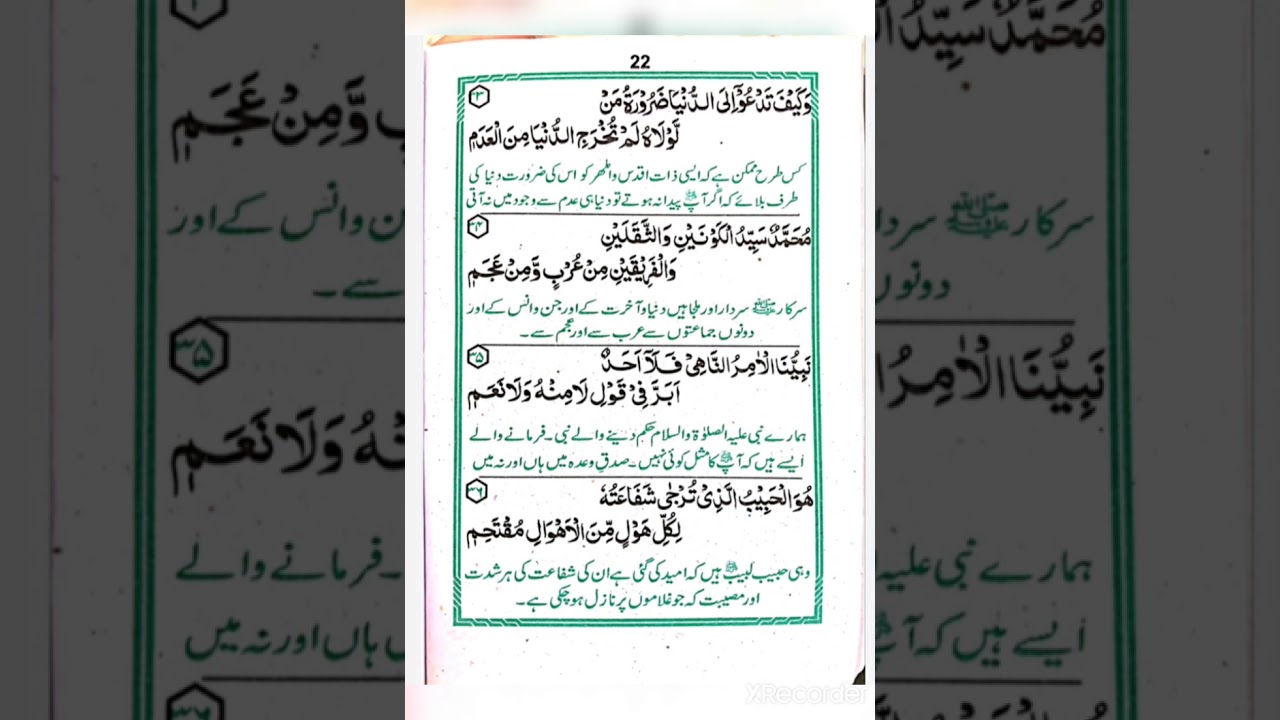 22
وَكَيْفَ تَدْعُوْٓا اِلَى الدُّنْيَا ضَرُوْرَةُ مَنْ
۳۳
لَوْلَاهُ لَمْ تُخْرَجِ الدُّنْيَا مِنَ الْعَدَمِ
کس طرح ممکن ہے کہ ایسی ذات اقدس واطہر کو اس کی ضرورت دنیا کی
طرف بلائے کہ اگر آپ ﷺ پیدا نہ ہوتے تو دنیا ہی عدم سے وجود میں نہ آتی
مُحَمَّدٌ سَيِّدُ الْكَوْنَيْنِ وَالثَّقَلَيْنِ
۳۴
وَالْفَرِيْقَيْنِ مِنْ عُرْبٍ وَّمِنْ عَجَمِ
سرکار ﷺ سردار اور ملجا ہیں دنیا و آخرت کے اور جن وانس کے اور
دونوں جماعتوں سے عرب سے اور عجم سے۔
نَبِيُّنَا الْاٰمِرُ النَّاهِيْ فَلَآ اَحَدٌ
۳۵
اَبَرَّ فِيْ قَوْلِ لَا مِنْهُ وَلَا نَعَمِ
ہمارے نبی علیہ الصلوٰۃ والسلام حکم دینے والے نبی۔ فرمانے والے
ایسے ہیں کہ آپ ﷺ کا مثل کوئی نہیں۔ صدقِ وعدہ میں ہاں اور نہ میں
هُوَ الْحَبِيْبُ الَّذِيْ تُرْجٰى شَفَاعَتُهٗ
۳۶
لِكُلِّ هَوْلٍ مِّنَ الْاَهْوَالِ مُقْتَحِمِ
وہی حبیب لبیب ﷺ ہیں کہ امید کی گئی ہے ان کی شفاعت کی ہر شدت
اور مصیبت کہ جو غلاموں پر نازل ہو چکی ہے۔
XRecorder